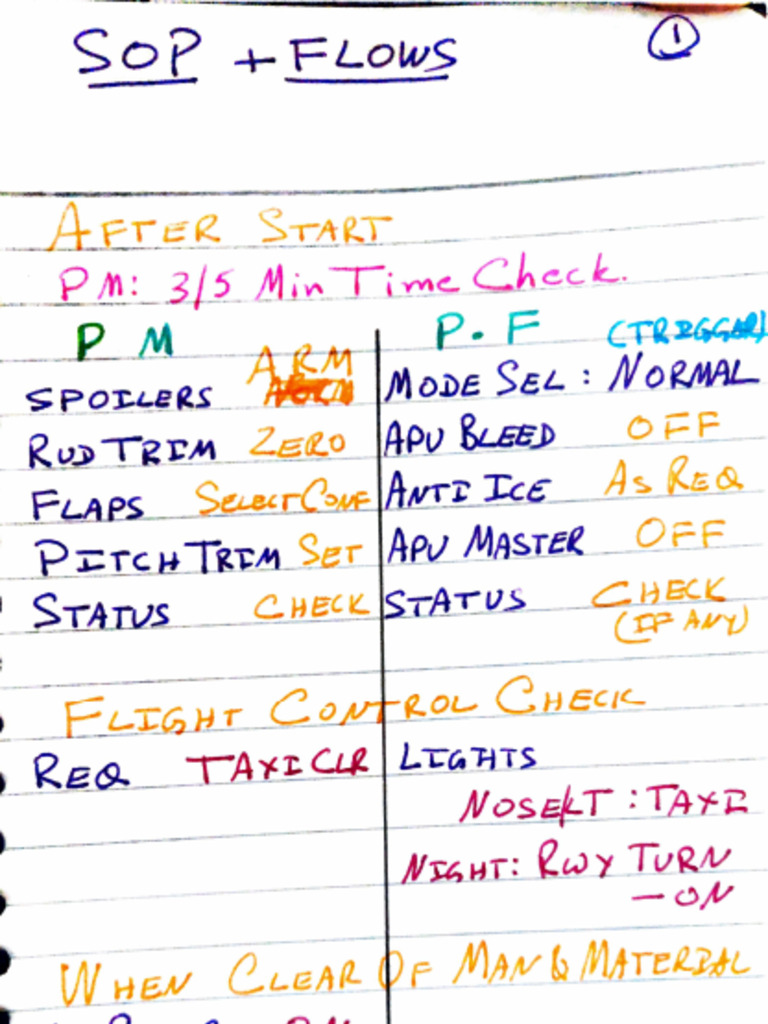 SOP + FLOWS
1
AFTER START
PM: 3/5 Min Time Check.
PM P.F (TRIGGER)
SPOILERS ARM MODE SEL : NORMAL
RUD TRIM ZERO APU BLEED OFF
FLAPS SELECT CONF ANTI ICE AS REQ
PITCH TRIM SET APU MASTER OFF
STATUS CHECK STATUS CHECK
(IF ANY)
FLIGHT CONTROL CHECK
REQ TAXI CLR LIGHTS
NOSE LT : TAXI
NIGHT: RWY TURN
- ON
WHEN CLEAR OF MAN & MATERIAL